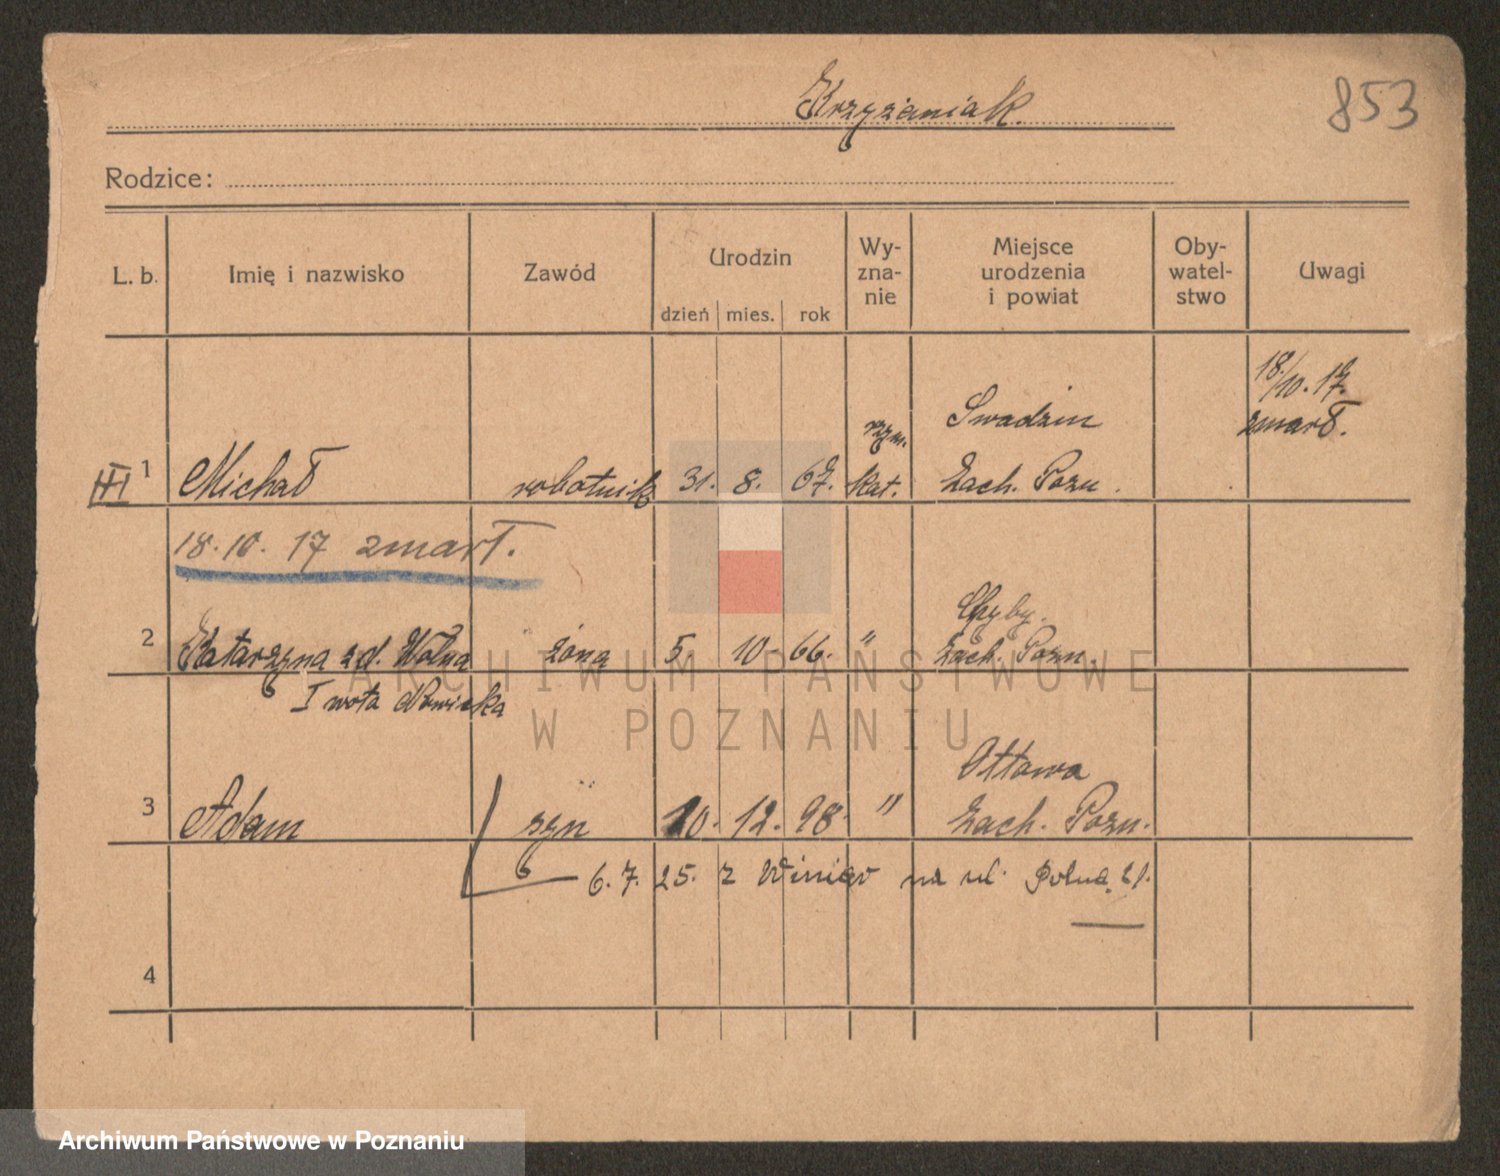 Krzyżaniak.
853
Rodzice:
L. b. Imię i nazwisko Zawód Urodzin dzień mies. rok Wy-zna-nie Miejsce urodzenia i powiat Oby-watel-stwo Uwagi
18/10. 17.
zmarł.
Swadzin
rzym.
1 Michał robotnik 31. 8. 67. kat. Zach. Pozn.
18. 10. 17 zmarł.
Chyby.
2 Katarzyna zd. Wolna żona 5. 10. 66. " Zach. Pozn.
I voto Nowicka
ARCHIWUM PAŃSTWOWE
W POZNANIU
Ottowa
3 Adam syn 10. 12. 98. " Zach. Pozn.
6. 7. 25. z Winiar na ul. Polna 21.
4
Archiwum Państwowe w Poznaniu